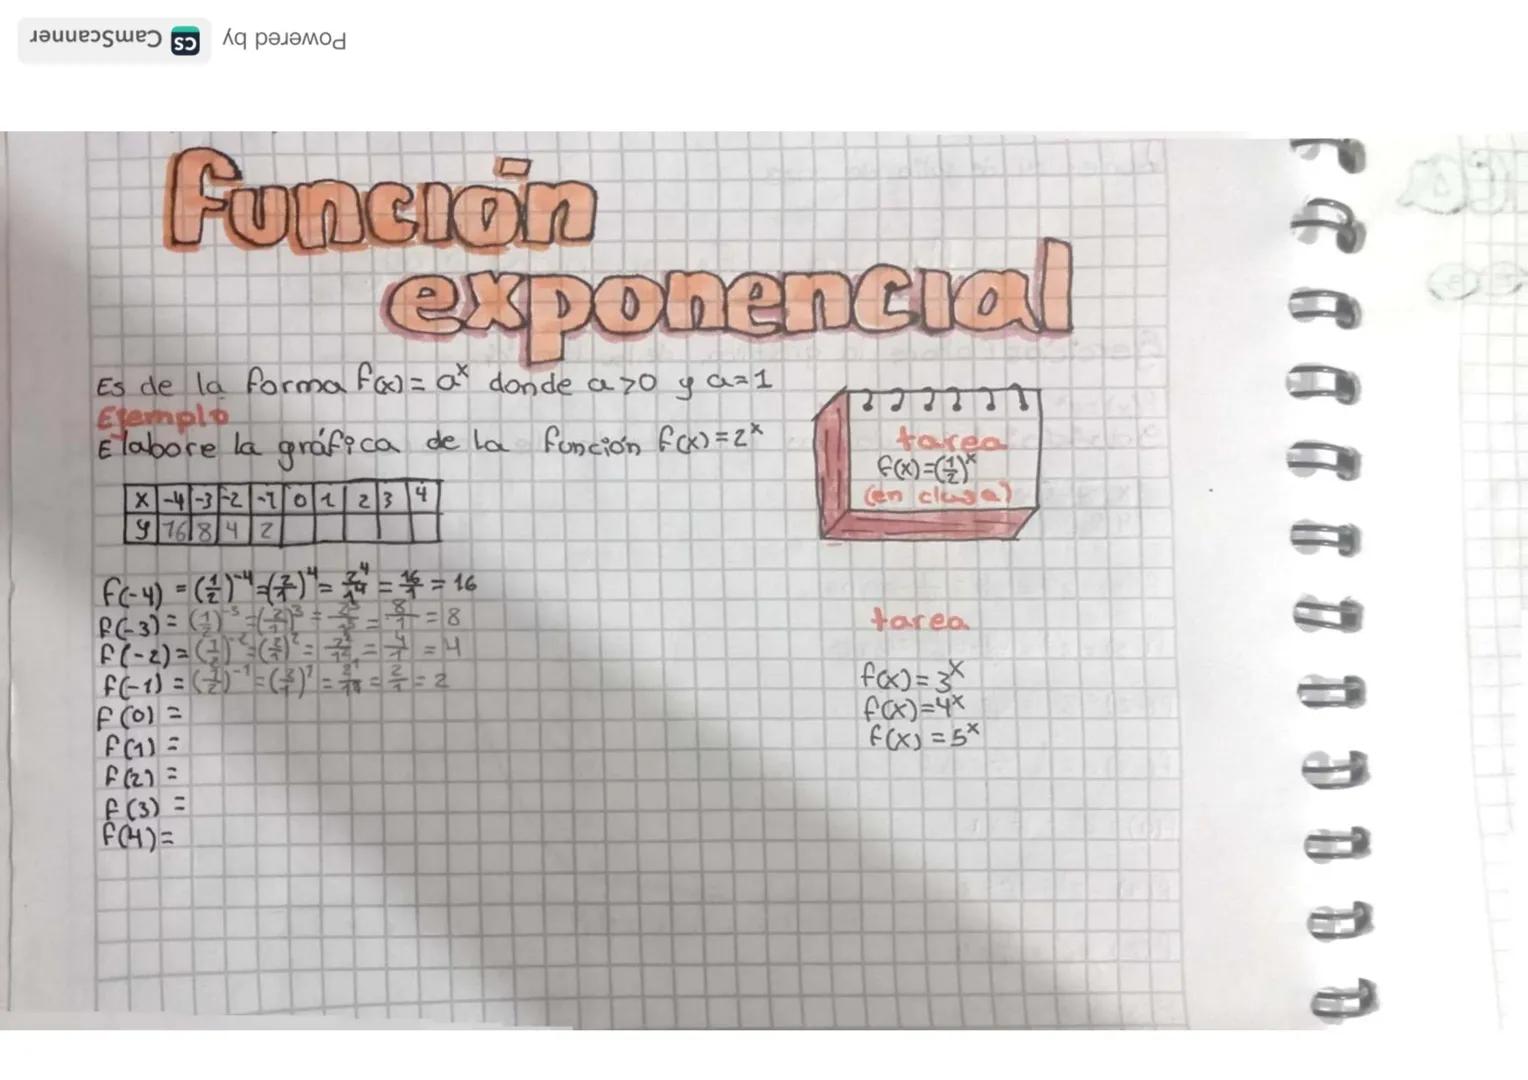 Powered by CS CamScanner
función
exponencial
Es de la forma f(x) = a^x donde a>0 y a=1
Ejemplo
Elabore la gráfica de la función f(x)=2^x
x -4 -3 -2 -1 0 1 2 3 4
y 16 8 4 2
f(-4) = (1/2)^-4 = (2/1)^4 = 2^4/1^4 = 16/1 = 16
f(-3) = (1/2)^-3 = (2/1)^3 = 2^3/1^3 = 8/1 = 8
f(-2) = (1/2)^-2 = (2/1)^2 = 2^2/1^2 = 4/1 = 4
f(-1) = (1/2)^-1 = (2/1)^1 = 2^1/1^1 = 2/1 = 2
f(0) =
f(1) =
f(2) =
f(3) =
f(4) =
tarea
f(x)=(1/2)^x
(en clase)
tarea
f(x) = 3^x
f(x) = 4^x
f(x) = 5^x